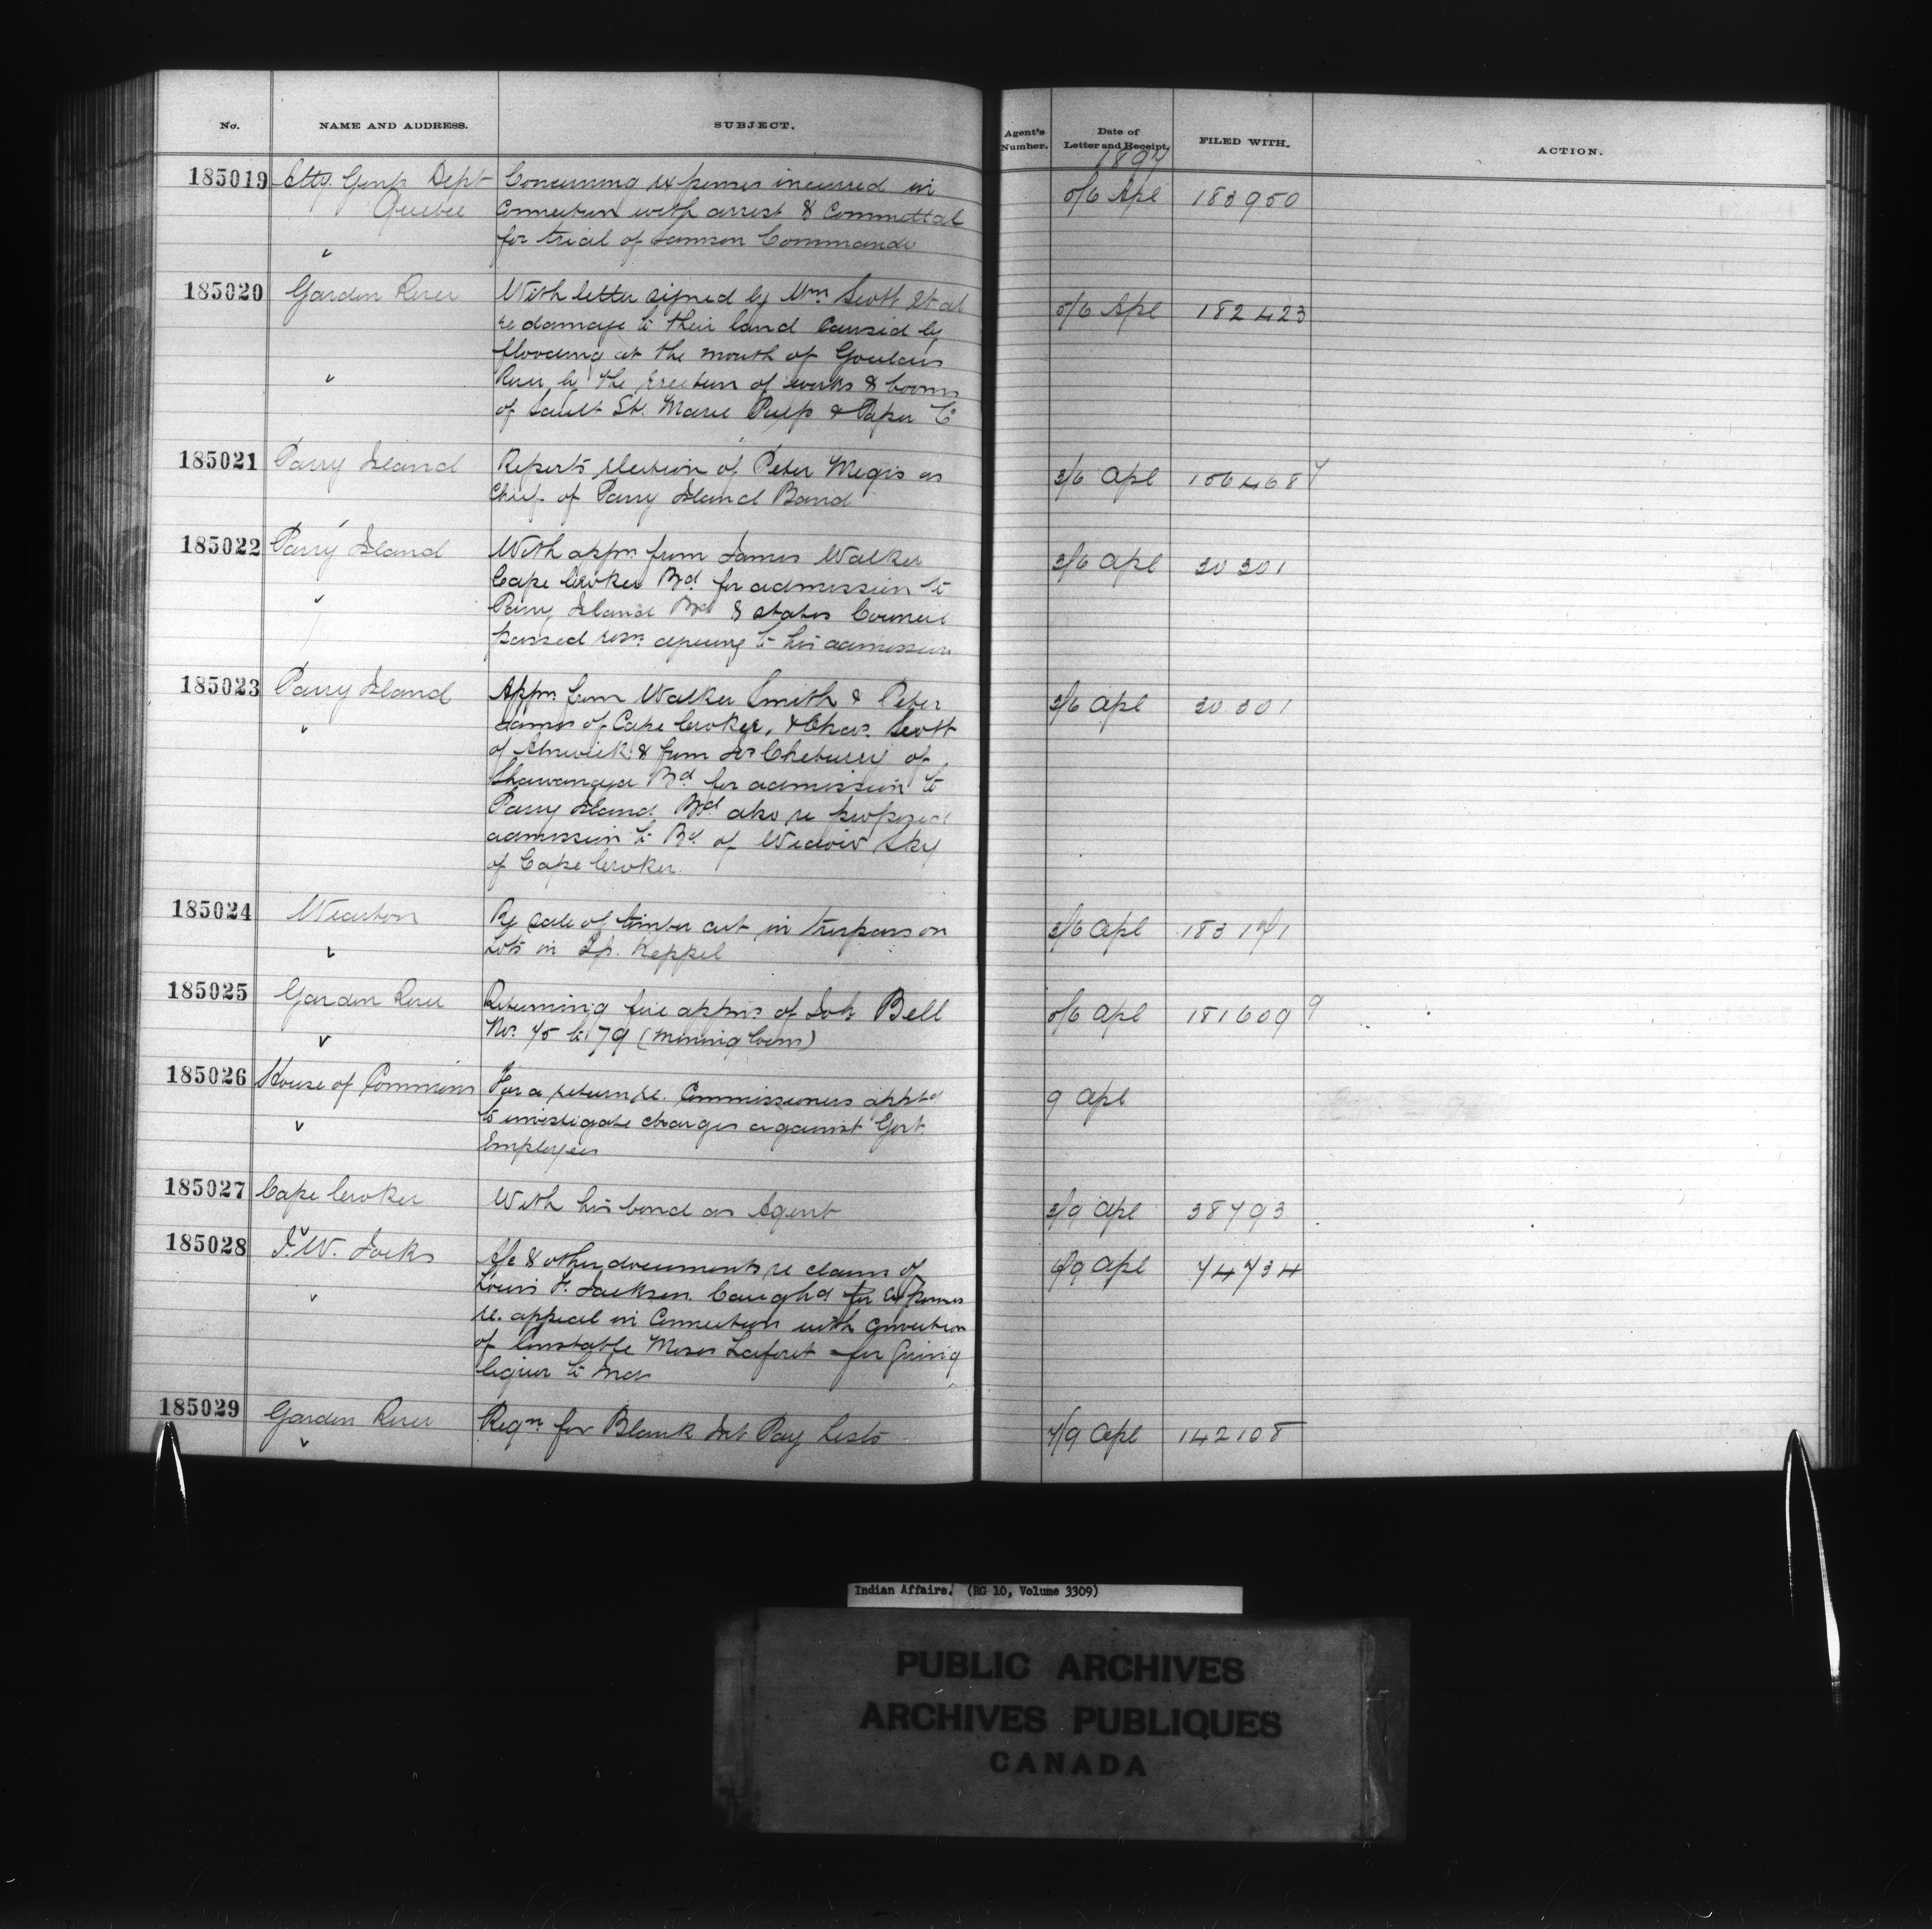 No. NAME AND ADDRESS. SUBJECT. Agent's Number. Date of Letter and Receipt. FILED WITH. ACTION.
1897
185019 Atty. Genls Dept Concerning expenses incurred in 5/6 Apl 183950
Quebec connection with arrest & committal
for trial of Samson Commande
185020 Garden River With letter signed by Wm Scott et al 5/6 Apl 182423
re damage to their land caused by
flooding at the mouth of Goulais
River by the erection of works & booms
of Sault St. Marie Pulp & Paper Co
185021 Parry Island Reports election of Peter Megis as 3/6 Apl
Chief of Parry Island Band
185022 Parry Island With appn from James Walker 3/6 Apl 30301
Cape Croker Bd for admission to
Parry Island Bd & states Council
passed resn. agreeing to his admission
185023 Parry Island Appn from Walker Smith & Peter 3/6 Apl 30301
James of Cape Croker, & Chas. Scott
of Alnwick & from
Shawanaga Bd for admission to
Parry Island Bd also re proposed
admission to Bd. of Widow Sky
of Cape Croker
185024 Wiarton Re sale of timber cut in trespass on 3/6 Apl 183171
Lots in Tp. Keppel
185025 Garden River Returning five appns of Bell 5/6 Apl 181609
Nos. 75 to 79 (Mining Locns)
185026 House of Commons For a return re. Commissioners apptd 9 Apl
to investigate charges against Govt.
Employees
185027 Cape Croker With his bond as Agent 3/9 Apl 38793
185028 J. W. Jocks A/c & other documents re claim of 9 Apl 74734
Louis F. Jackson Caughd for expenses
re. appeal in connection with conviction
of Constable Moses Laforet for giving
liquor to Inds
185029 Garden River Reqn for Blank Int Pay Lists 7/9 Apl 142108
Indian Affairs. (RG 10, Volume 3309)
PUBLIC ARCHIVES
ARCHIVES PUBLIQUES
CANADA